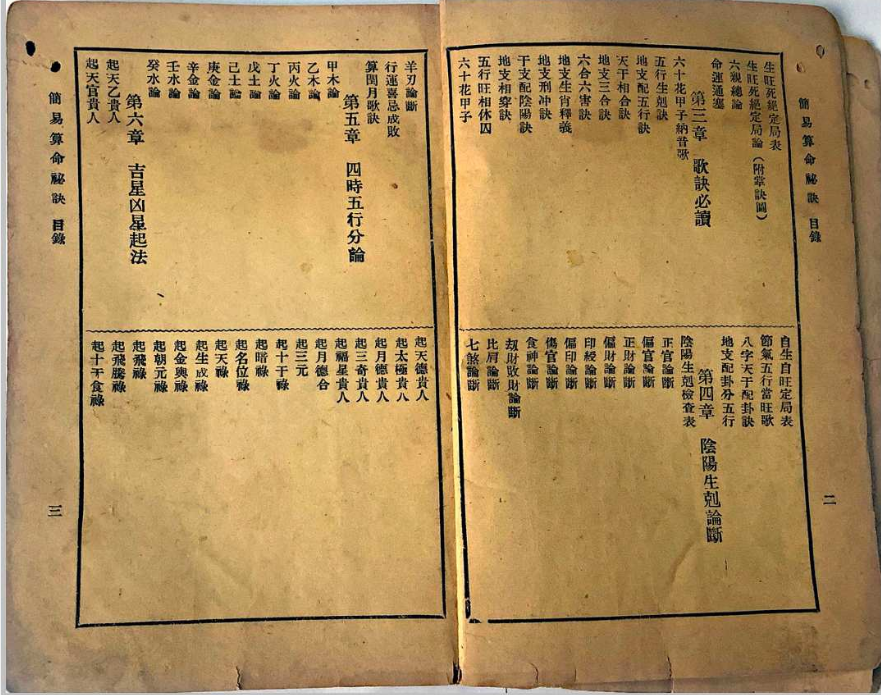 簡易算命祕訣 目錄
二
生旺死絕定局表
生旺死絕定局論（附掌訣圖）
六親總論
命運通塞
第三章 歌訣必讀
六十花甲子納音歌
五行生剋訣
地支配五行訣
天干相合訣
地支三合訣
六合六害訣
地支生肖釋義
地支刑冲訣
干支配陰陽訣
地支相穿訣
五行旺相休囚
六十花甲子
自生自旺定局表
節氣五行當旺歌
八字天干配卦訣
地支配卦分五行
第四章 陰陽生剋論斷
陰陽生剋檢查表
正官論斷
偏官論斷
正財論斷
偏財論斷
印綬論斷
偏印論斷
傷官論斷
食神論斷
刼財敗財論斷
比肩論斷
七煞論斷
羊刃論斷
行運喜忌成敗
算閏月歌訣
第五章 四時五行分論
甲木論
乙木論
丙火論
丁火論
戊土論
己土論
庚金論
辛金論
壬水論
癸水論
第六章 吉星凶星起法
起天乙貴人
起天官貴人
起天德貴人
起太極貴人
起月德貴人
起三奇貴人
起福星貴人
起月德合
起三元
起十干祿
起暗祿
起名位祿
起天祿
起生成祿
起金輿祿
起朝元祿
起飛祿
起飛騰祿
起十干食祿
簡易算命祕訣 目錄
三